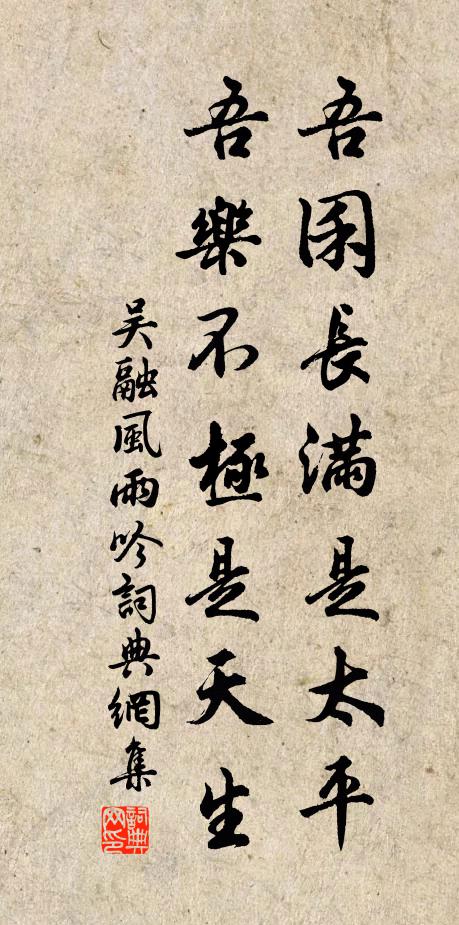 吾囷長滿是太平
吾樂不極是天生
吳融風雨吟詞典網集
詞典网印